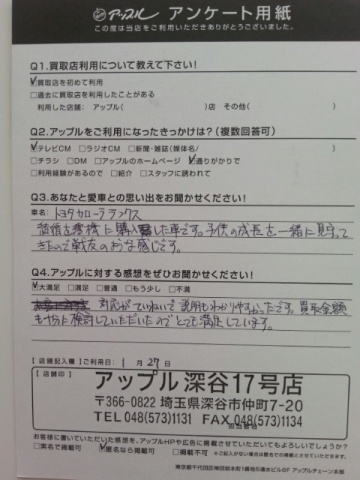 アップル アンケート用紙
この度は当店をご利用いただきありがとうございました。
Q1.買取店利用について教えて下さい!
☑買取店を初めて利用
□過去に買取店を利用したことがある
利用した店舗: アップル( )店 その他( )
Q2.アップルをご利用になったきっかけは?(複数回答可)
☑テレビCM □ラジオCM □新聞・雑誌(媒体名/ )
□チラシ □DM □アップルのホームページ ☑通りがかりで
□利用経験があるので □紹介 □スタッフに誘われて
Q3.あなたと愛車との思い出をお聞かせください!
車名: トヨタカローラランクス
結婚を機に購入した車です。子供の成長を一緒に見守って
きたので戦友のような感じです。
Q4.アップルに対する感想をぜひお聞かせください!
☑大満足 □満足 □普通 □もう少し □不満
対応がていねいで説明もわかりやすかったです。買取金額
も十分に検討していただいたのでとても満足しています。
【店舗記入欄】ご利用日: 1月27日
【店舗印】
アップル 深谷17号店
〒366-0822 埼玉県深谷市仲町7-20
TEL 048(573)1131 FAX 048(573)1134
お客様に書いていただいた感想を、アップルHPや広告に掲載させていただいてもよろしいでしょうか?
□実名で掲載可 ☑匿名なら掲載可 □掲載不可